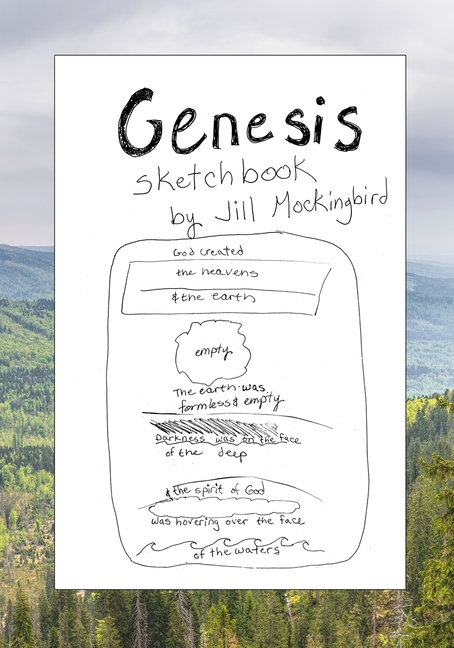 Genesis
sketchbook
by Jill Mockingbird
God created
the heavens
& the earth
empty
The earth was
formless & empty
Darkness was on the face
of the deep
& the spirit of God
was hovering over the face
of the waters